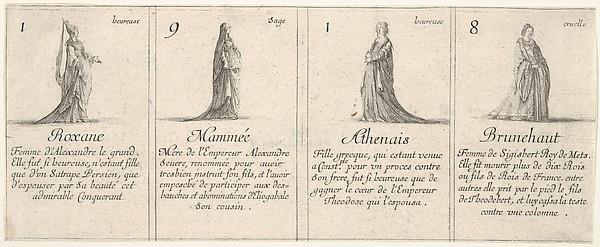 1 heureuse
Roxane
Femme d'Alexandre le grand.
Elle fut si heureuse, n'estant fille
que d'un Satrape Persien, que
d'espouser par sa beauté cet
admirable Conquerant.
9 Sage
Mammée
Mere de l'Empereur Alexandre
Seuere, renommée pour auoir
tresbien instruit son fils, et l'auoir
empesché de participer aux des-
bauches et abominations d'Eliogabale
son cousin.
1 heureuse
Athenais
Fille grecque, qui estant venue
a Const. pour un proces contre
son frere, fut si heureuse que de
gagner le cœur de l'Empereur
Theodose qui l'espousa.
8 cruelle
Brunehaut
Femme de Sigisbert Roy de Mets.
Elle fit mourir plus de dix Rois
ou fils de Rois de France, entre
autres elle prit par le pied le fils
de Theodebert, et luy cassa la teste
contre une colomne.